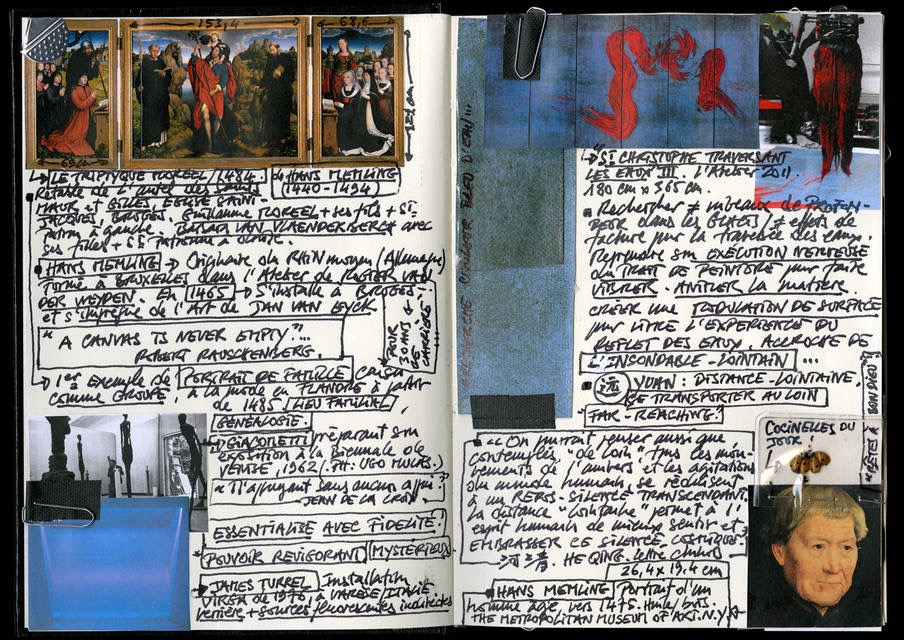 153,4
68,6
63 cm
121 cm
LE TRIPTYQUE MOREEL / 1484 de HANS MEMLING
(1440-1494)
Retable de l'autel des Saints
MAUR et GILLES, EGLISE SAINT-
JACQUES, BRUGES. Guillaume MOREEL + ses fils + ST-
Patron à gauche. BARBARA VAN VLAENDERBERGH avec
ses filles + STE Patronne à droite.
HANS MEMLING → Originaire du RHIN moyen (Allemagne)
Formé à BRUXELLES dans l'Atelier de ROGIER VAN
DER WEYDEN. En 1465 → S'installe à BRUGES
et s'imprègne de l'Art de JAN VAN EYCK
POUR
30 ANS
DE
CARRIÈRE
"A CANVAS IS NEVER EMPTY"
ROBERT RAUSCHENBERG.
1er Exemple de PORTRAIT DE FAMILLE
comme GROUPE, à la mode en FLANDRE à partir
de 1485. LIEU FAMILIAL /
GENEALOGIE.
GIACOMETTI préparant son
exposition à la Biennale de
VENISE, 1962 / (PH: UGO MULAS.)
"S'appuyant sans aucun appui"
JEAN DE LA CROIX.
ESSENTIALISE AVEC FIDELITÉ.
POUVOIR REVIGORANT MYSTÉRIEUX
JAMES TURREL Installation
VIRGA de 1976, à VARESE / ITALIE
verrière + sources fluorescentes indirectes
RECHERCHE COULEUR BLEU D'EAU...
ST CHRISTOPHE TRAVERSANT
LES EAUX III. L'Atelier 2011.
180 cm x 365 cm.
Rechercher ≠ niveaux de PROFON-
DEUR dans les GLACIS / ≠ effets de
facture pour la traversée des eaux.
Reprendre son EXÉCUTION NERVEUSE
du TRAIT DE PEINTURE pour faire
VIBRER. ANIMER la matière.
CRÉER UNE MODULATION DE SURFACE
pour VIVRE L'EXPERIENCE DU
REFLET DES EAUX, ACCROCHE DE
L'INSONDABLE-LOINTAIN ...
遠 YUAN: DISTANCE-LOINTAINE.
SE TRANSPORTER AU LOIN
FAR-REACHING.
"BÊTES À BON DIEU"
COCCINELLES DU
JOUR!
"On pourrait penser aussi que
contemplés, "de loin" tous les mou-
vements de l'univers et les agitations
du monde humain, se réduisent
à un RERS-SILENCE TRANSCENDANT.
La distance "lointaine" permet à l'
esprit humain de mieux sentir et
EMBRASSER CE SILENCE COSMIQUE"
HE QING. lettre
26,4 x 19,4 cm
HANS MEMLING Portrait d'un
homme âgé, vers 1475. Huile / bois.
THE METROPOLITAN MUSEUM OF ART. N.Y